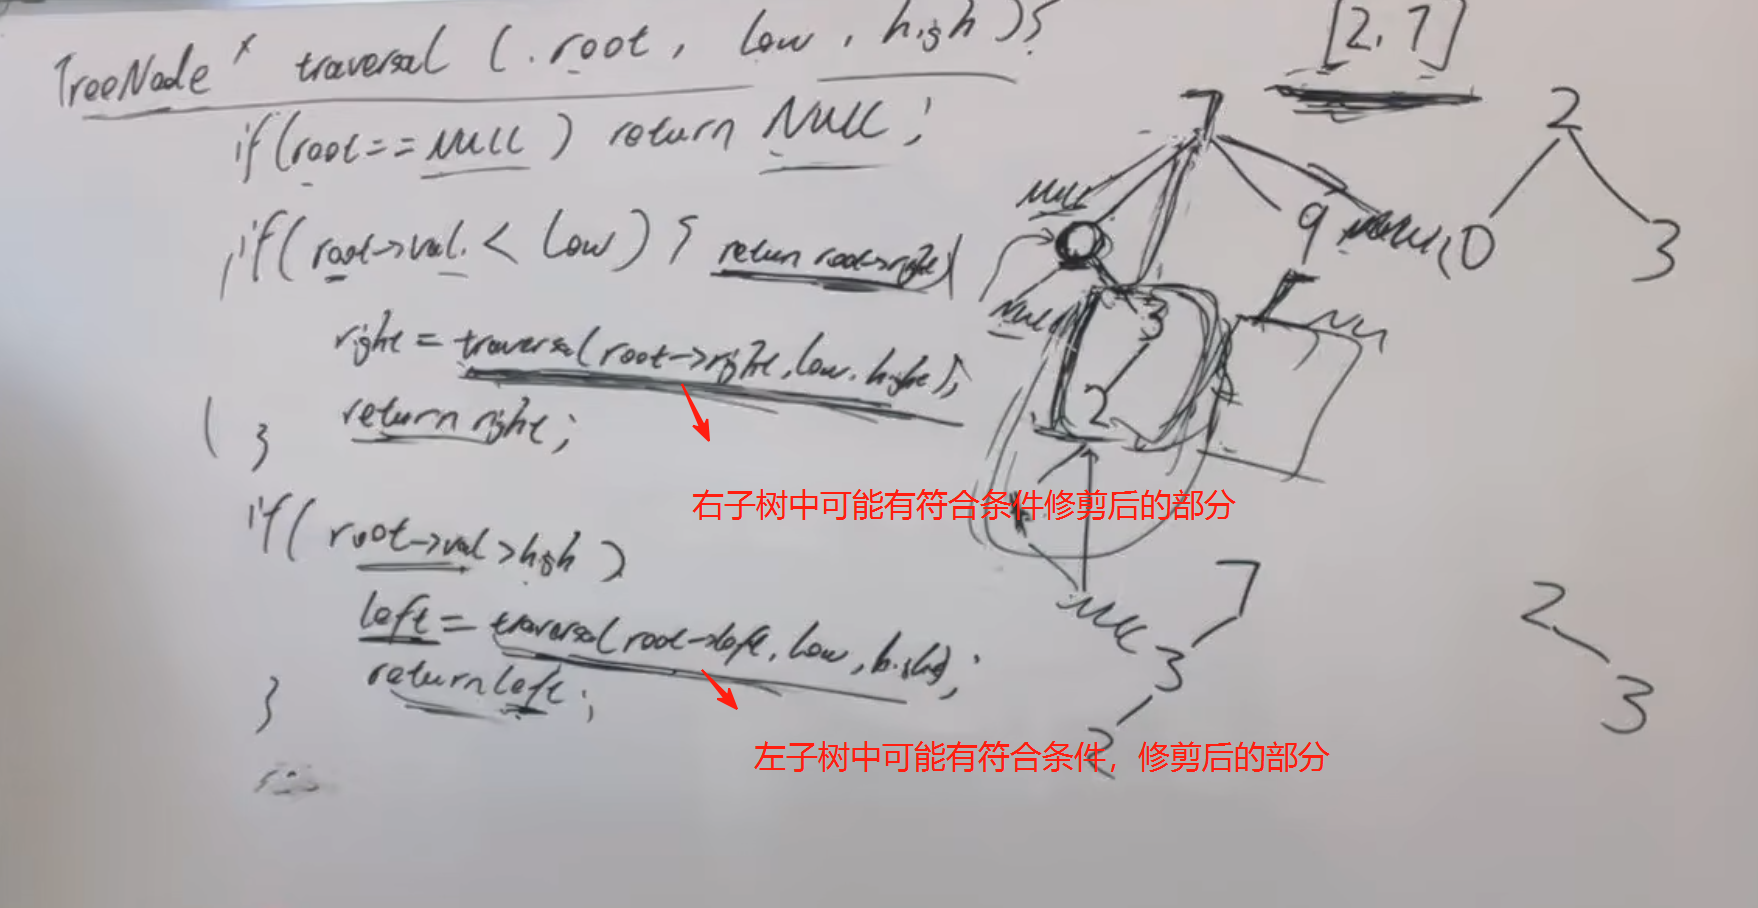 TreeNode * traversal (root, low, high) {
if(root==NULL) return NULL;
if(root->val < low) { return root->right
right = traversal(root->right, low, high);
return right;
}
if(root->val > high)
left = traversal(root->left, low, high);
return left;
}
右子树中可能有符合条件修剪后的部分
左子树中可能有符合条件，修剪后的部分
[2,7]
7
NULL
9
NULL
3
2
NULL
2
0
3
7
3
2
2
3